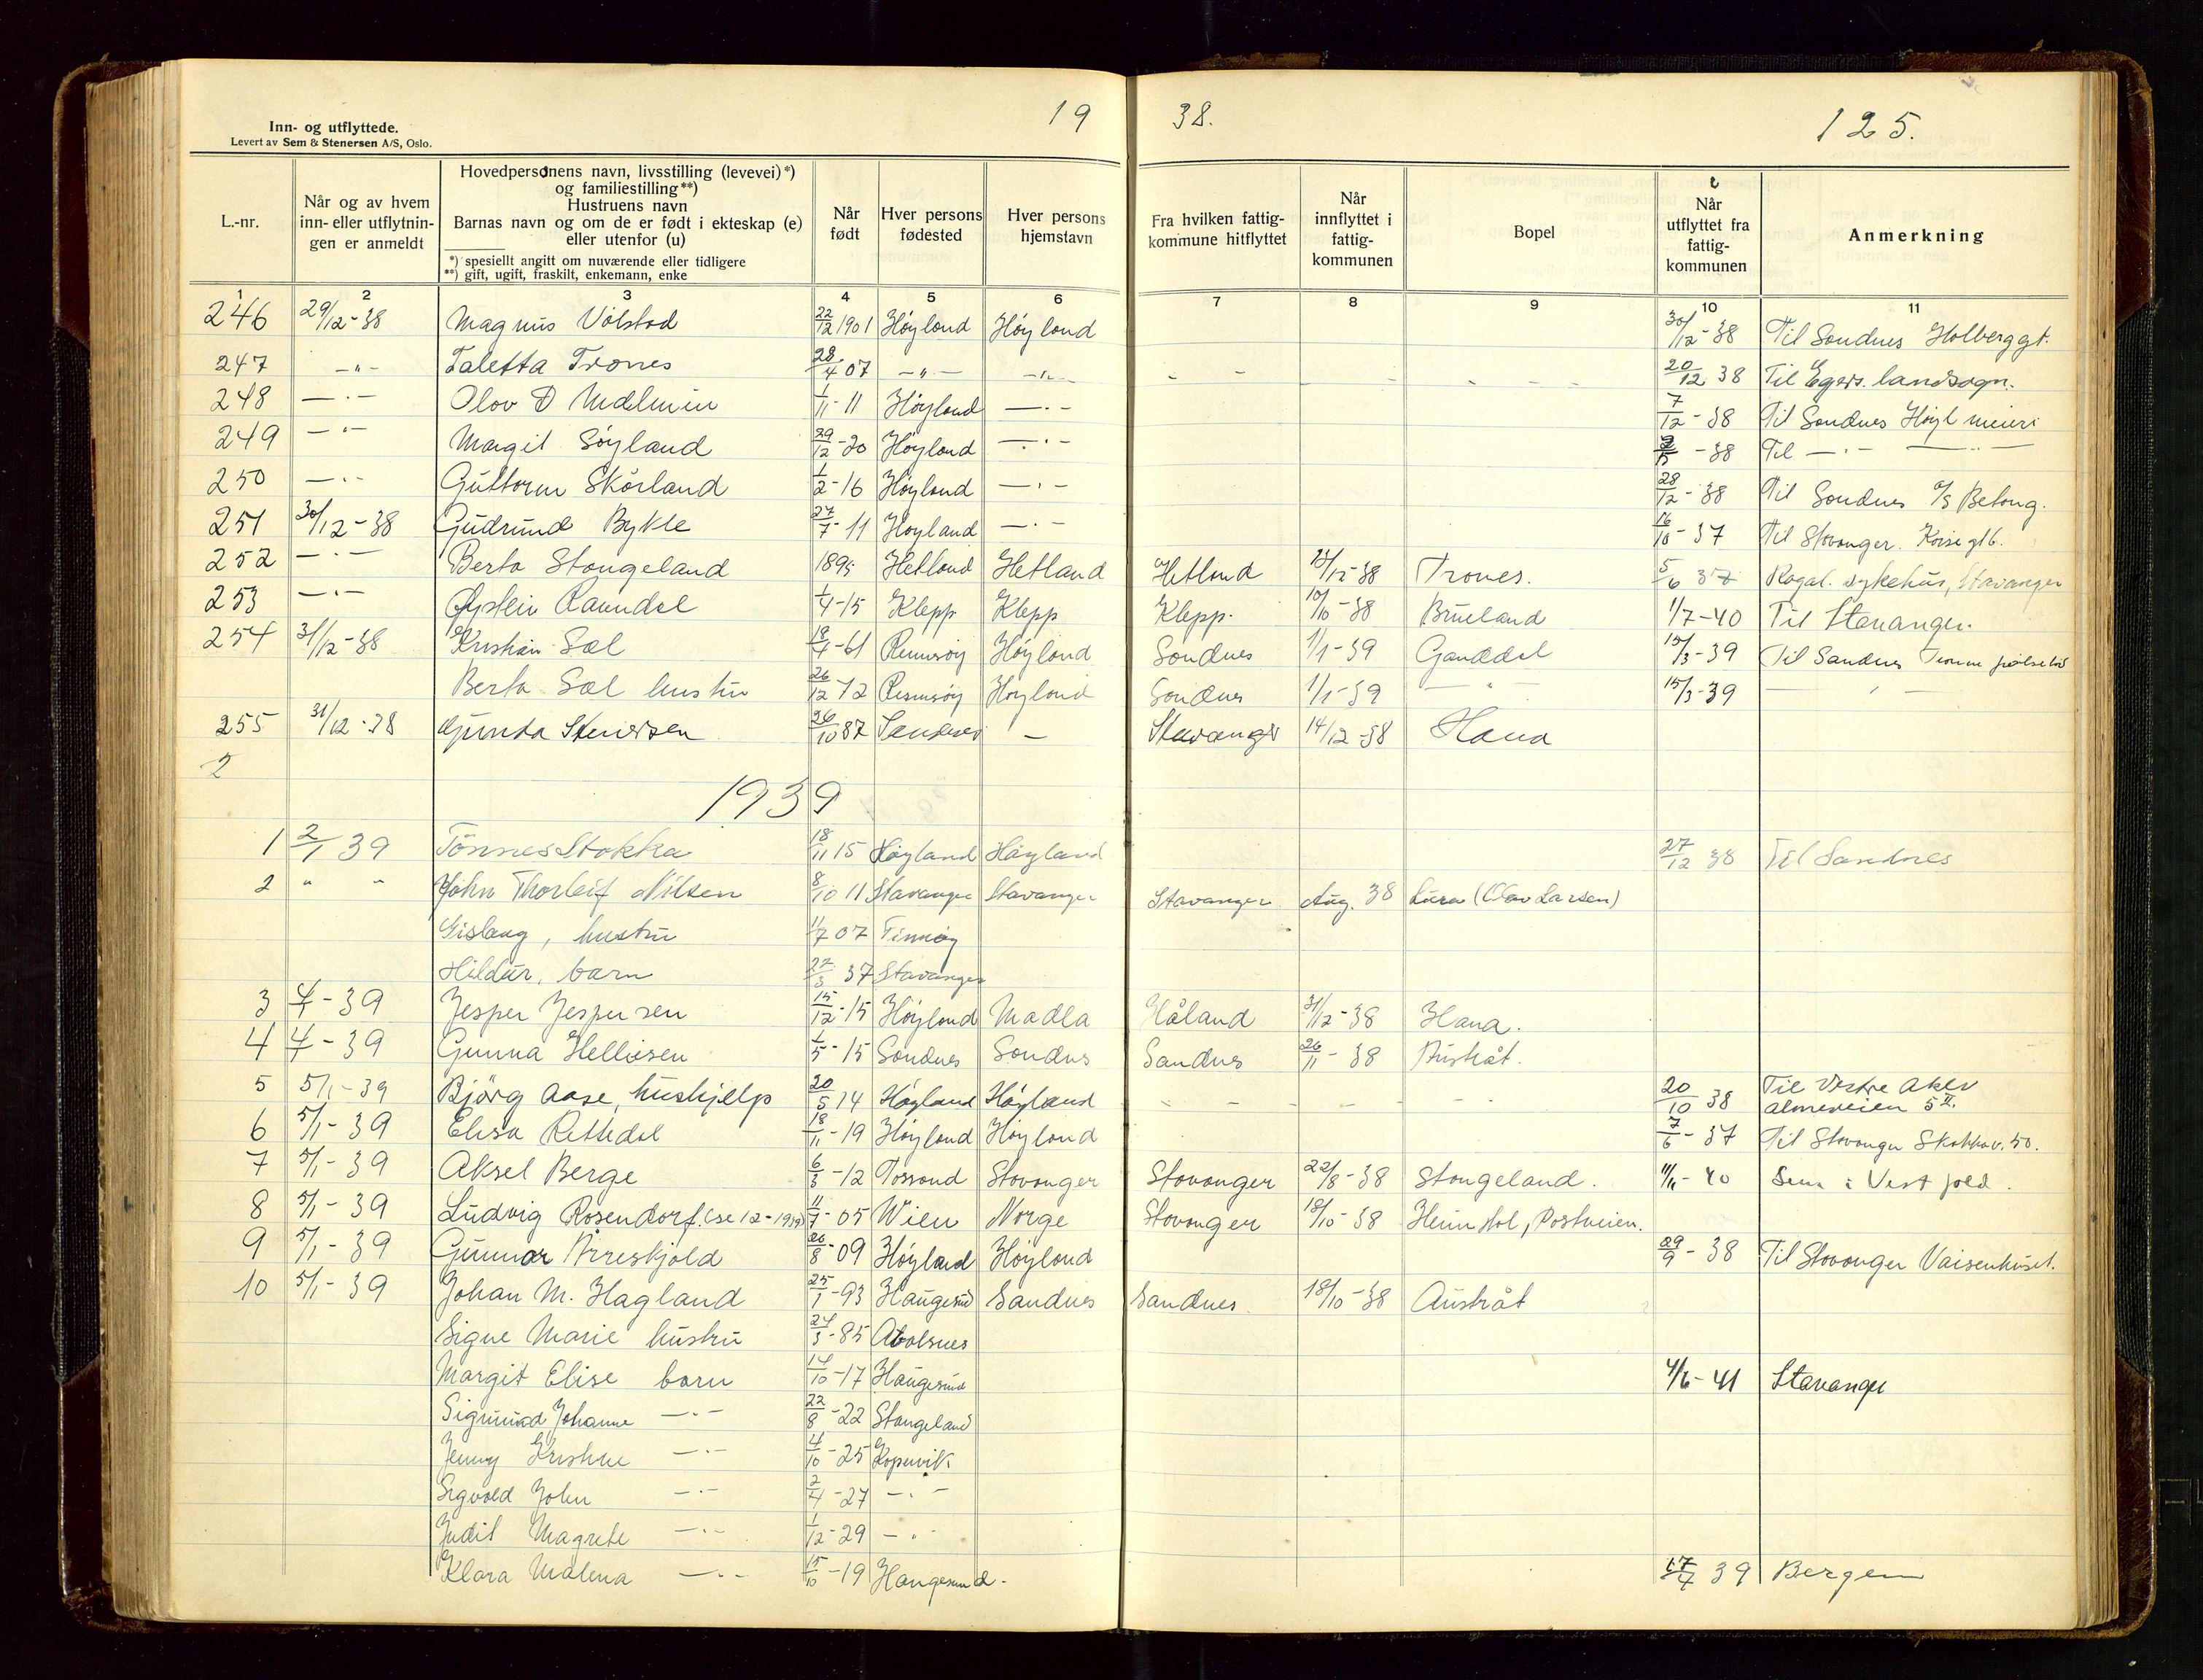 19 38. 125.
Inn- og utflyttede.
Levert av Sem & Stenersen A/S, Oslo.
L.-nr.
Når og av hvem
inn- eller utflytnin-
gen er anmeldt
Hovedpersonens navn, livsstilling (levevei)*)
og familiestilling**)
Hustruens navn
Barnas navn og om de er født i ekteskap (e)
eller utenfor (u)
*) spesiellt angitt om nuværende eller tidligere
**) gift, ugift, fraskilt, enkemann, enke
Når
født
Hver persons
fødested
Hver persons
hjemstavn
Fra hvilken fattig-
kommune hitflyttet
Når
innflyttet i
fattig-
kommunen
Bopel
Når
utflyttet fra
fattig-
kommunen
Anmerkning
1 2 3 4 5 6 7 8 9 10 11
246 29/12-38 Magnus Vølstad 22/12 1901 Høyland Høyland 30/12-38 Til Sandnes Holberggt.
247 -"- Taletta Trones 28/4 07 -"- -"- - - - - - - - 20/12 38 Til Egers. landsogn.
248 -"- Olav D 1/11-11 Høyland -"- 7/12-38 Til Sandnes Høyl meieri
249 -"- Margit Søyland 29/12-20 Høyland -"- -38 Til -"- -"-
250 -"- Guttorm Skårland 1/2-16 Høyland -"- 28/12-38 Til Sandnes A/S Betong.
251 30/12-38 Gudrund Bykle 27/7-11 Høyland -"- 16/10-37 Til Stavanger.
252 -"- Berta Stangeland 1895 Hetland Hetland Hetland /12-38 Trones. 5/6 37 Rogal. sykehus, Stavanger
253 -"- Øystein Ravndal 1/4-15 Klepp Klepp Klepp. 10/10-38 Brueland 1/7-40 Til Stavanger.
254 31/12-38 Kristian Sæl 19/4-61 Rennesøy Høyland Sandnes 1/1-39 Ganddal 15/3-39 Til Sandnes
Berta Sæl hustru 26/12 72 Rennesøy Høyland Sandnes 1/1-39 -"- 15/3-39 -"-
255 31/12-38 Gunda Stenersen 26/10 87 Sandnes - Stavanger 14/12-38 Hana
2
1939
1 2/1 39 Tønnes Stokka 18/11 15 Høyland Høyland 27/12 38 Til Sandnes
2 " " John Thorleif Nilsen 8/10 11 Stavanger Stavanger Stavanger Aug. 38 Lura (Olav Larsen)
Gislaug, hustru 11/7 07 Finnøy
Hildur, barn 22/3 37 Stavanger
3 4/-39 Jesper Jespersen 15/12-15 Høyland Madla Håland 31/12-38 Hana.
4 4/-39 Gunna Helliesen 1/5-15 Sandnes Sandnes Sandnes 26/11-38 Austråt.
5 5/1-39 Bjørg Aase, hushjelp 20/5 14 Høyland Høyland - - - - - - 20/10 38 Til Vestre Aker
Almeveien 5 II.
6 5/1-39 Elisa Rettedal 18/11-19 Høyland Høyland 7/6-37 Til Stavanger Skolkav. 50.
7 5/1-39 Aksel Berge 6/3-12 Fossand Stavanger Stavanger 22/8-38 Stangeland. 11/11-40 Sem i Vestfold.
8 5/1-39 Ludvig Rosendorf. (se 12-1939) 11/7-05 Wien Norge Stavanger 18/10-38 Heimdal, Postveien.
9 5/1-39 Gunnar Arreskjold 26/8-09 Høyland Høyland 29/9-38 Til Stavanger Vaisenhuset.
10 5/1-39 Johan M. Hagland 25/1-93 Haugesund Sandnes Sandnes. 18/10-38 Austråt
Signe Marie hustru 24/3-85 Avolsnes
Margit Elise barn 14/10-17 Haugesund 4/6-41 Stavanger
Sigmund Johanne -"- 22/8-22 Stangeland
Jenny Kristine -"- 4/10-25 Kopervik
Sigvald John -"- 2/4-27 -"-
Judit Magrete -"- 1/12-29 -"-
Klara Malena -"- 15/10-19 Haugesund. 17/4 39 Bergen